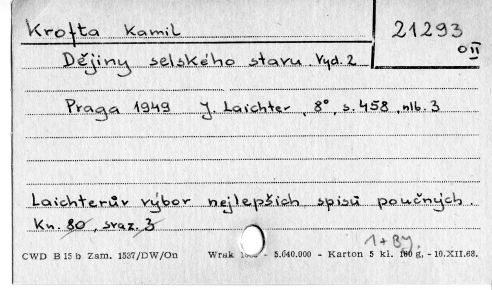 Krofta Kamil
21293
OII
Dějiny selského stavu. Vyd. 2
Praga 1949 J. Laichter, 8°, s. 458, nlb. 3
Laichterův výbor nejlepších spisů poučných.
Kn. 80, svaz. 3
1+By.
CWD B 15 b Zam. 1537/DW/On Wrak - 5.040.000 - Karton 5 kl. 180 g, - 10.XII.68.